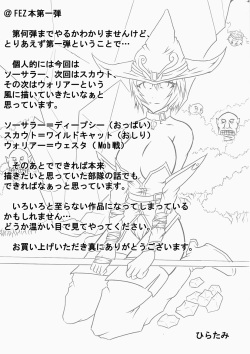 @FEZ本第一弾
第何弾までやるかわかりませんけど、
とりあえず第一弾ということで…
個人的には今回は
ソーサラー、次回はスカウト、
その次はウォリアーという
風に描いていきたいなぁと
思っています。
ソーサラー＝ディープシー(おっぱい)
スカウト＝ワイルドキャット(おしり)
ウォリアー＝ウェスタ(Mob戦)
そのあとでできれば本来
描きたいと思っていた部隊の話でも
できればなぁっと思っています。
いろいろと至らない作品になってしまっている
かもしれません…
どうか温かい目で見てやってください。
お買い上げいただき真にありがとうございます。
ひらたみ